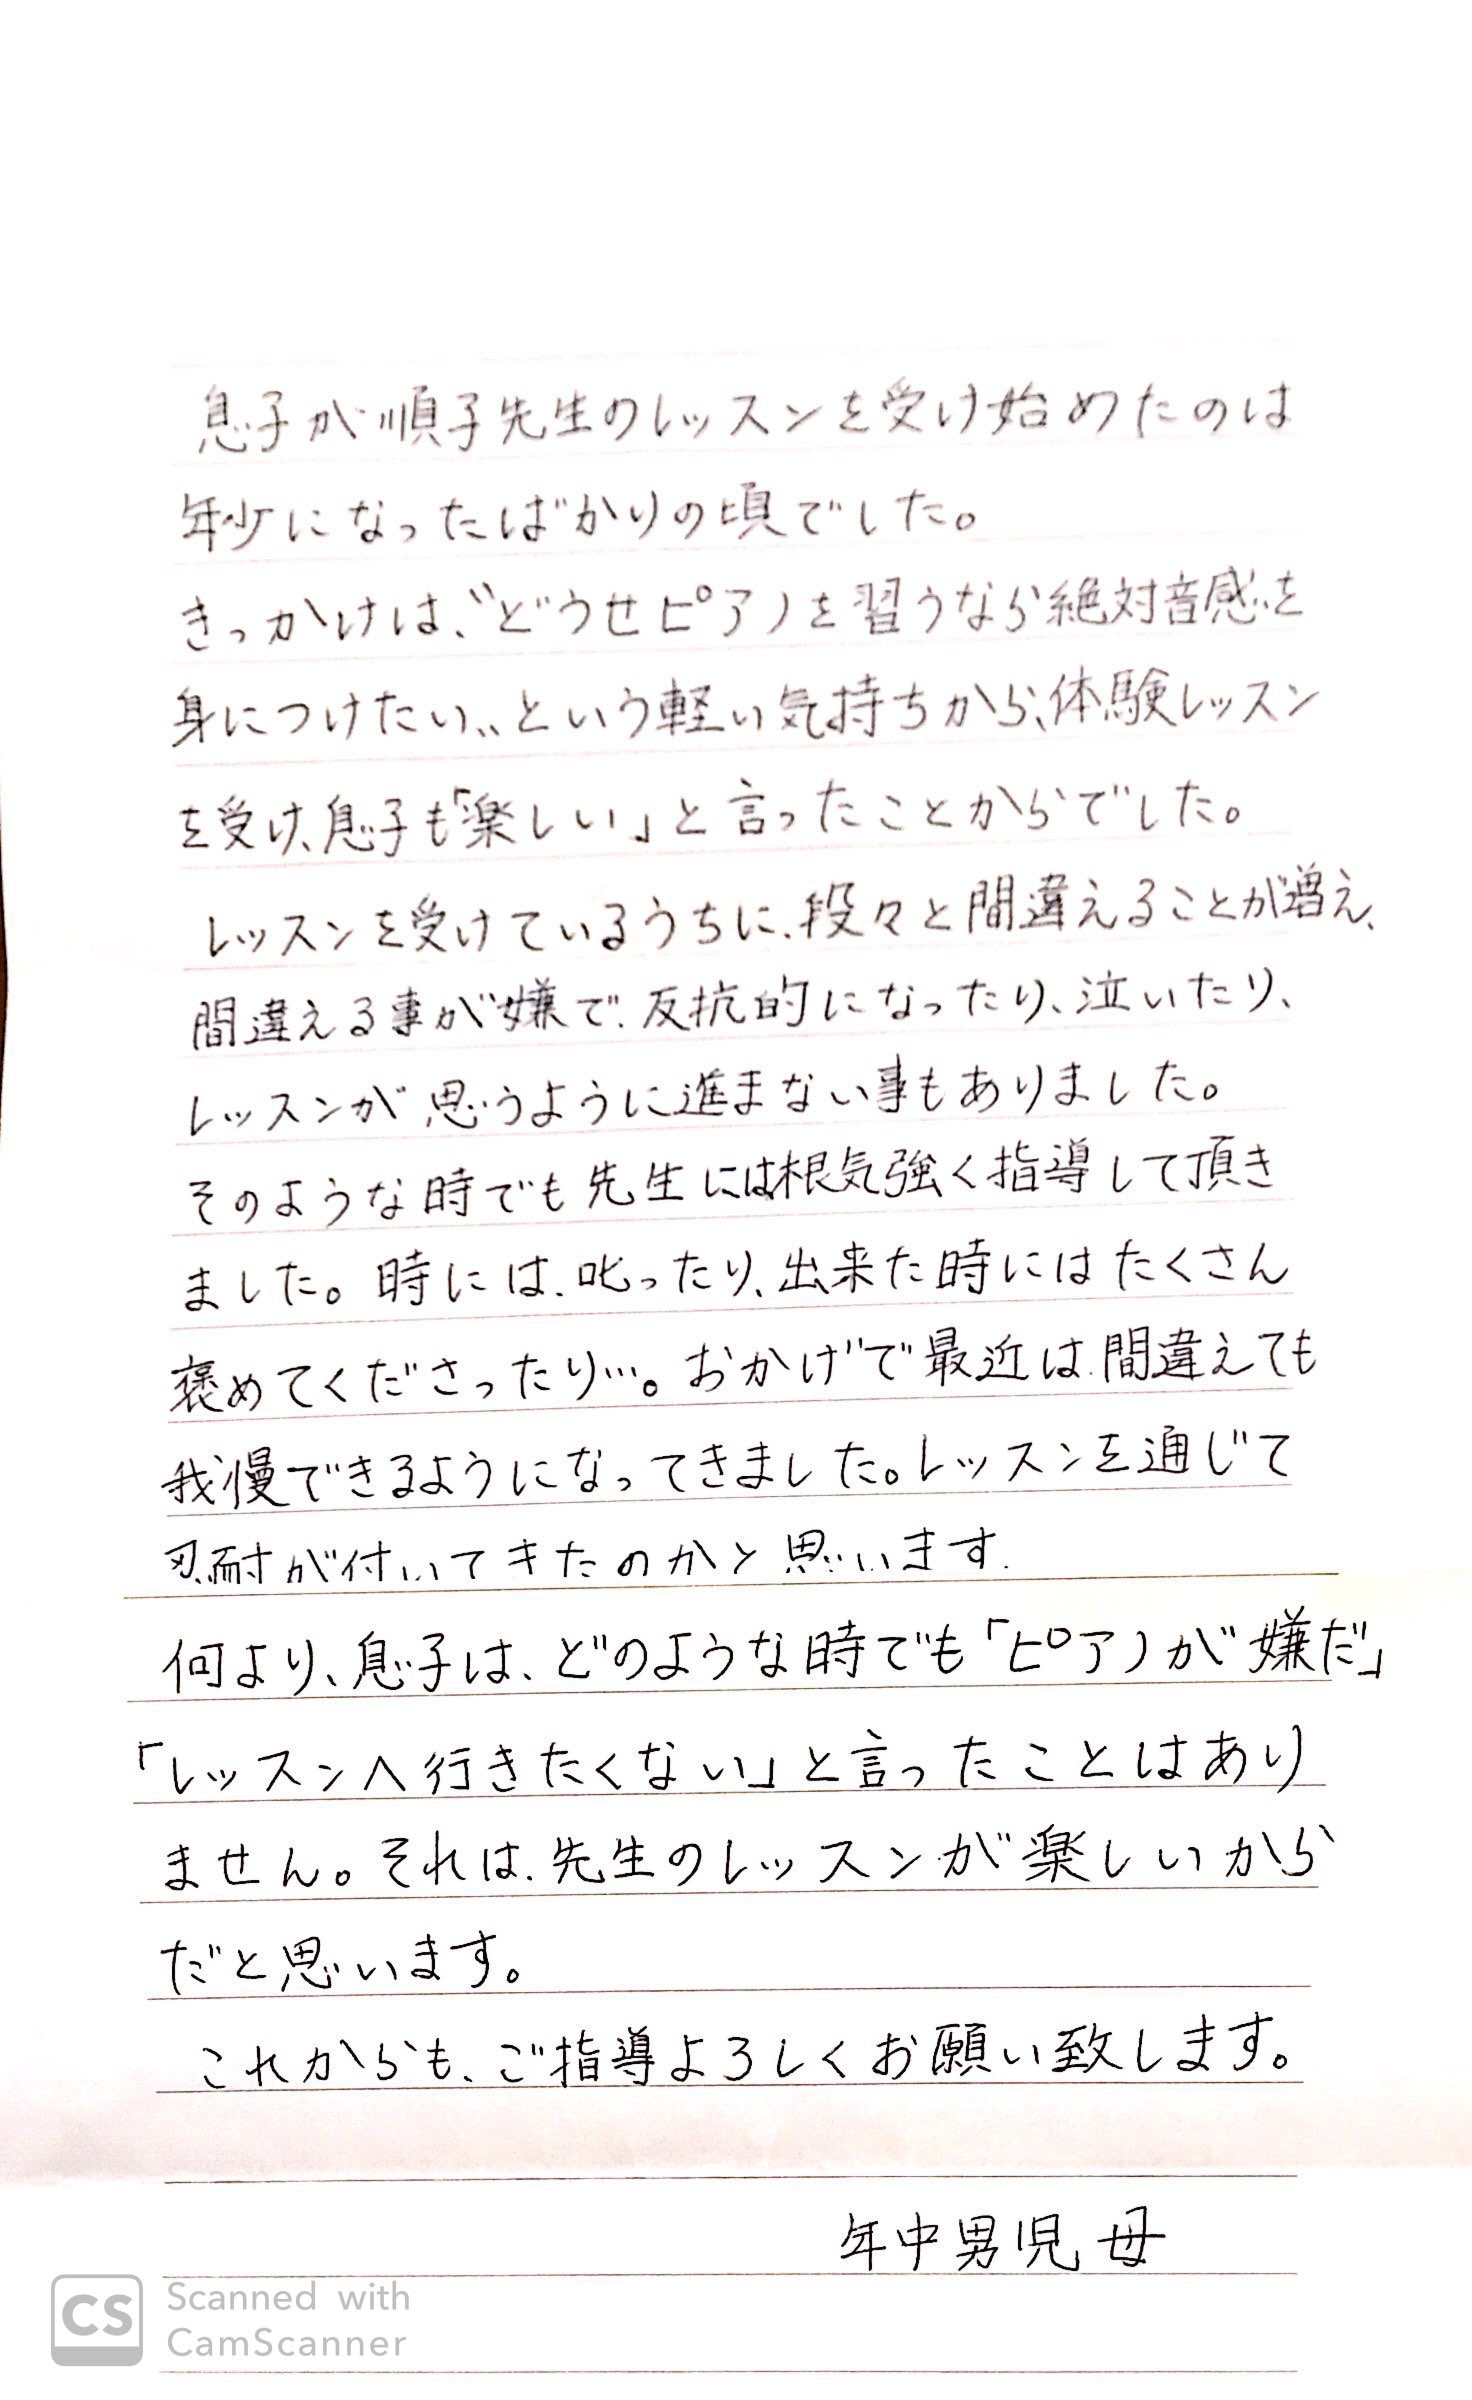 息子が順子先生のレッスンを受け始めたのは
年少になったばかりの頃でした。
きっかけは、〝どうせピアノを習うなら絶対音感を
身につけたい〟という軽い気持ちから、体験レッスン
を受け、息子も「楽しい」と言ったことからでした。
レッスンを受けているうちに、段々と間違えることが増え、
間違える事が嫌で、反抗的になったり、泣いたり、
レッスンが思うように進まない事もありました。
そのような時でも先生には根気強く指導して頂き
ました。時には、叱ったり、出来た時にはたくさん
褒めてくださったり…。おかげで最近は、間違えても
我慢できるようになってきました。レッスンを通じて
忍耐が付いてきたのかと思います。
何より、息子は、どのような時でも「ピアノが嫌だ」
「レッスンへ行きたくない」と言ったことはあり
ません。それは、先生のレッスンが楽しいから
だと思います。
これからも、ご指導よろしくお願い致します。
年中男児 母
CS Scanned with
CamScanner